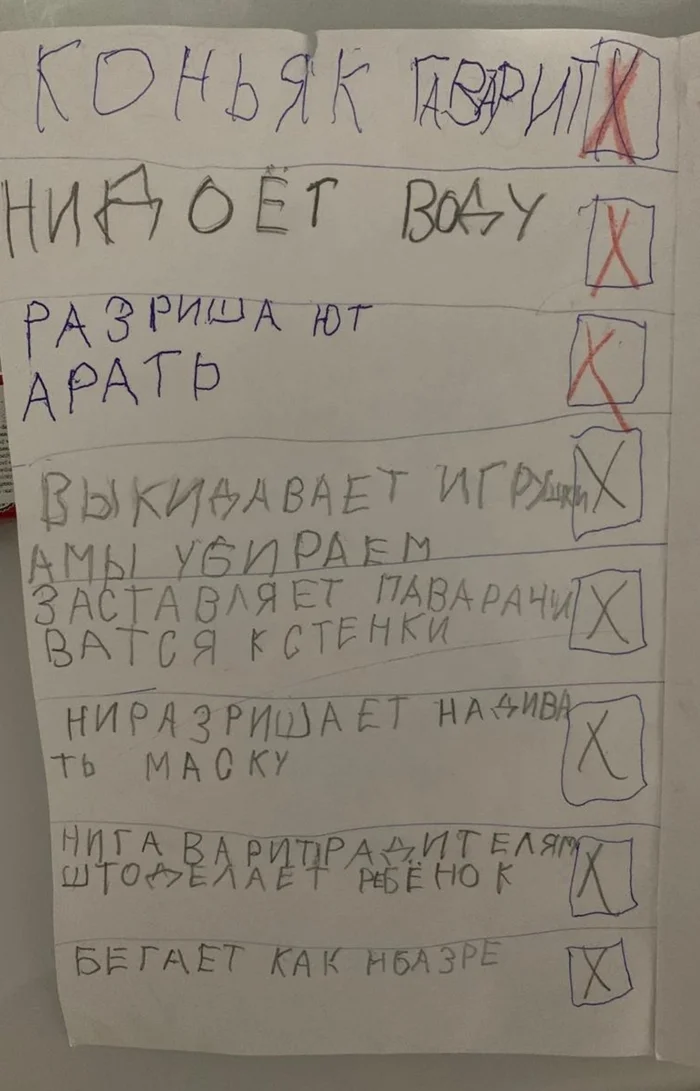 КОНЬЯК ГАВАРИТ
НИДОЁТ ВОДУ
РАЗРИШАЮТ
АРАТЬ
ВЫКИДАВАЕТ ИГРУШКИ
АМЫ УБИРАЕМ
ЗАСТАВЛЯЕТ ПАВАРАЧИ
ВАТСЯ К СТЕНКИ
НИРАЗРИШАЕТ НАДИВА
ТЬ МАСКУ
НИГАВАРИТРАДИТЕЛЯМ
ШТОДЕЛАЕТ РЕБЁНОК
БЕГАЕТ КАК НБАЗРЕ